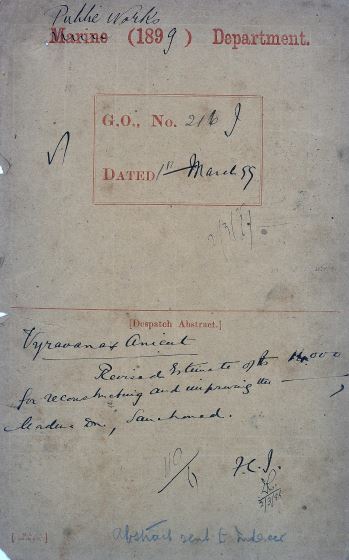 Public Works
Marine (1899) Department.
G.O., No. 216 I
DATED 1st March 99
2/3/99
[Despatch Abstract.]
Vyravanar Anicut
Revised Estimate of Rs 14,000
for reconstructing and improving the
, Sanctioned.
5/3/99
Abstract sent to Indexer